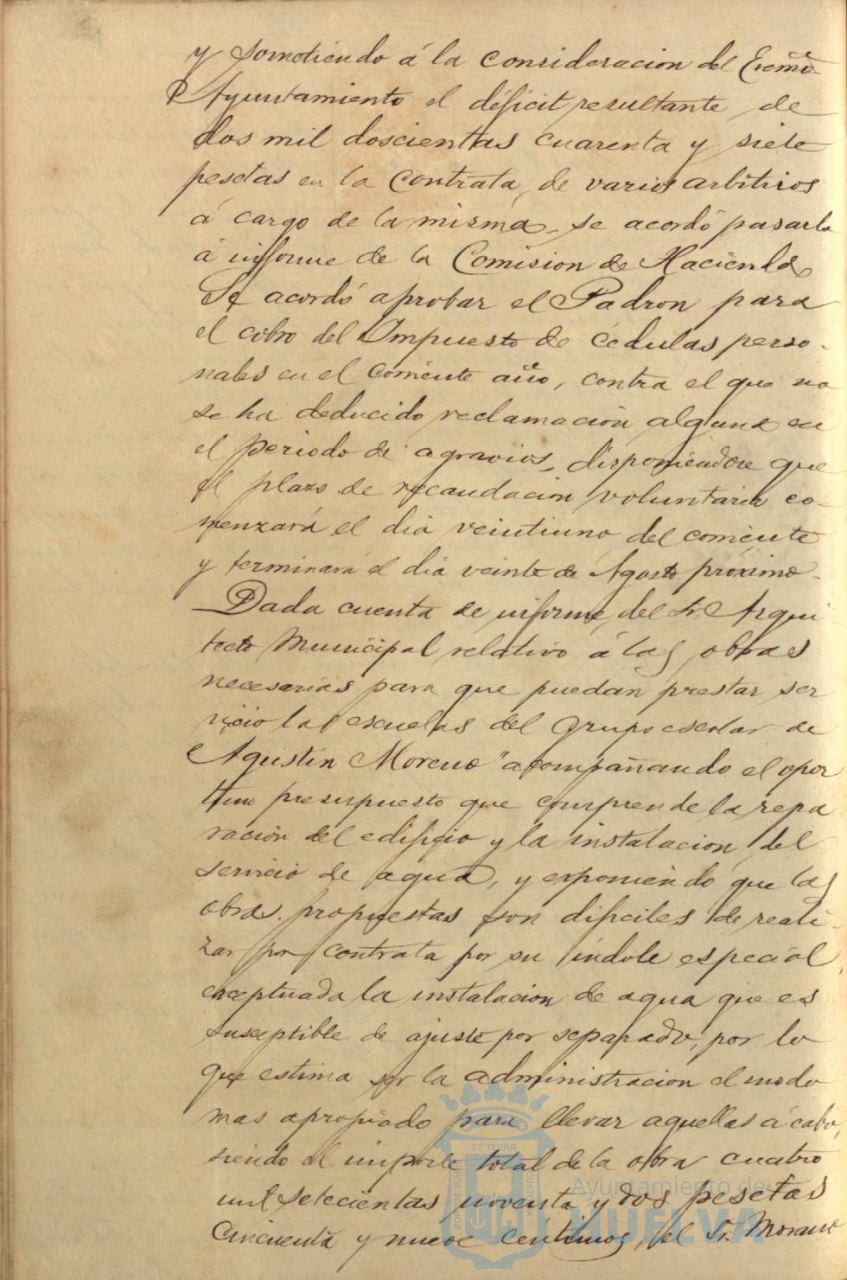 y sometiendo á la consideracion del Excmo
Ayuntamiento el déficit resultante de
dos mil doscientas cuarenta y siete
pesetas en la contrata de varios arbitrios
á cargo de la misma, se acordó pasarla
á informe de la Comision de Hacienda
Se acordó aprobar el Padron para
el cobro del Impuesto de cédulas perso-
nales en el corriente año, contra el que no
se ha deducido reclamación alguna en
el periodo de agravios, disponiendose que
el plazo de recaudación voluntaria co-
menzará el dia veintiuno del corriente
y terminará el dia veinte de Agosto próximo.
Dada cuenta de informe del Sr. Arqui
tecto Municipal relativo á las obras
necesarias para que puedan prestar ser
vicio las escuelas del grupo escolar de
"Agustin Moreno" acompañando el opor
tuno presupuesto que comprende la repa
ración del edificio y la instalación del
servicio de agua, y exponiendo que las
obras propuestas son dificiles de reali-
zar por contrata por su índole especial,
exceptuada la instalacion de agua que es
susceptible de ajuste por separado, por lo
que estima ser la administracion el modo
mas apropiado para llevar aquellas á cabo,
siendo el importe total de la obra cuatro
mil setecientas noventa y dos pesetas
cincuenta y nueve centimos, el Sr. Morano
ET TERRA
Ayuntamiento de
HUELVA